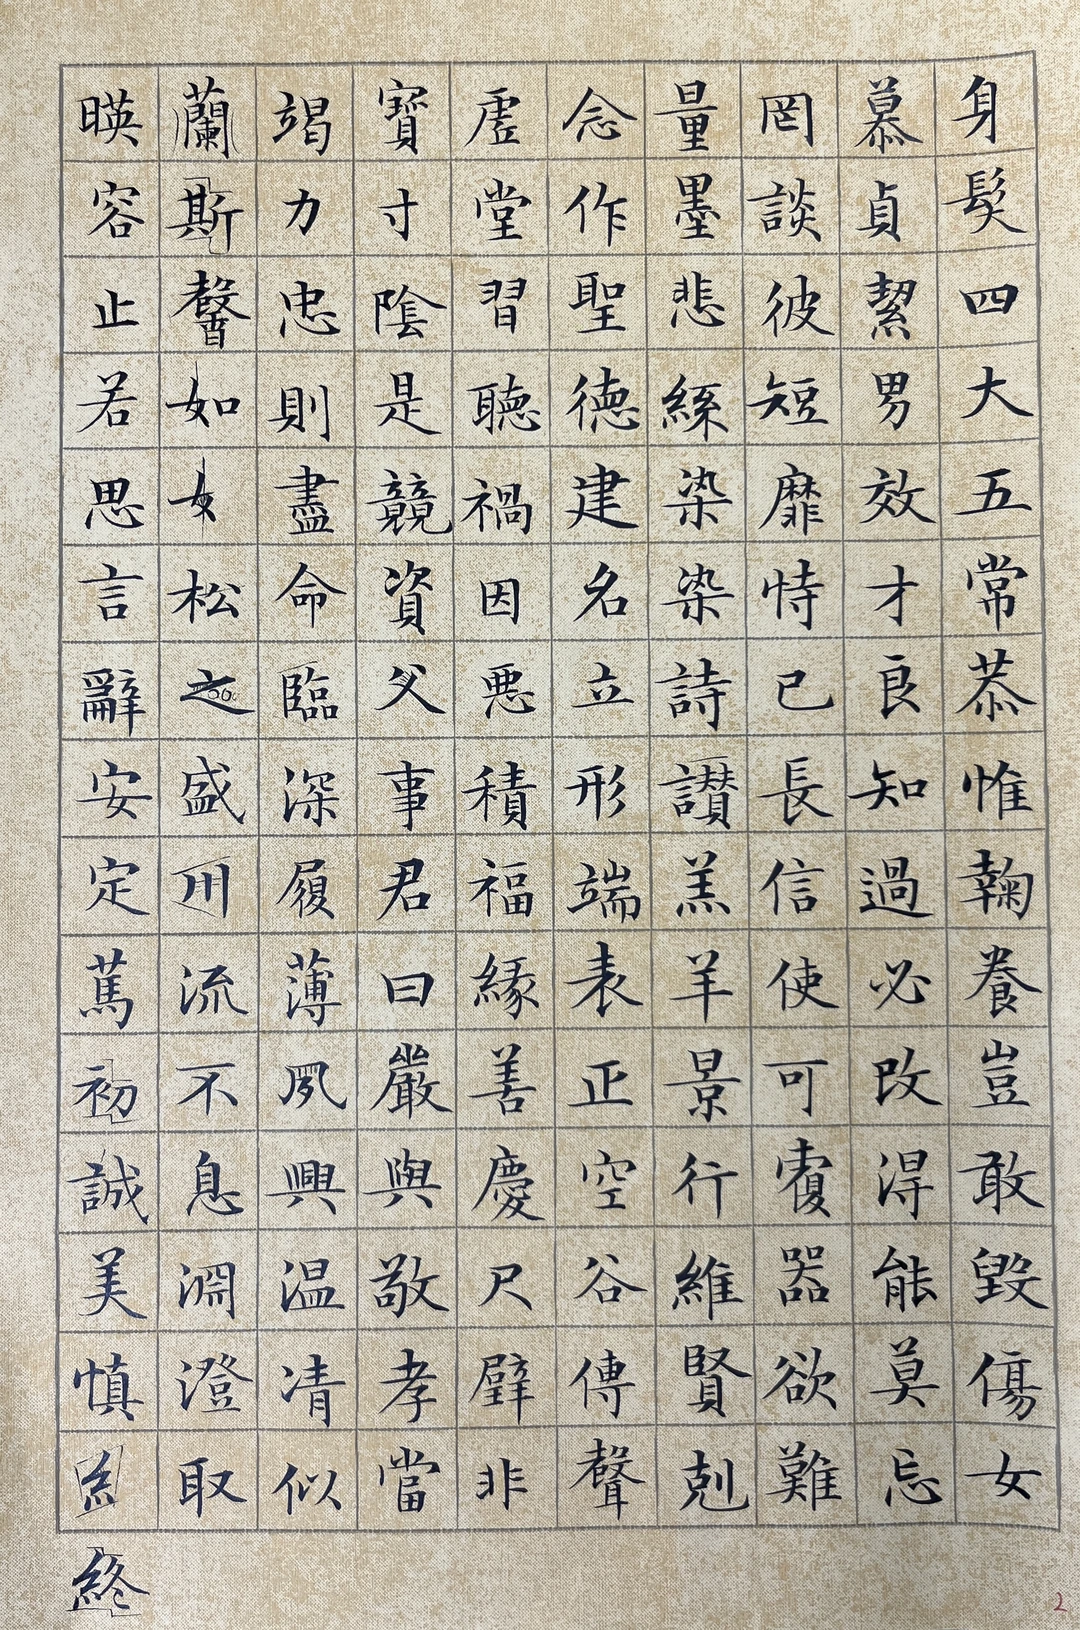 身髮四大五常恭惟鞠養豈敢毀傷女
慕貞絜男效才良知過必改得能莫忘
罔談彼短靡恃己長信使可覆器欲難
量墨悲絲染染詩讃羔羊景行維賢剋
念作聖徳建名立形端表正空谷傳聲
虛堂習聽禍因悪積福緣善慶尺璧非
寶寸陰是競資父事君曰嚴與敬孝當
竭力忠則盡命臨深履薄夙興温凊似
蘭斯馨如女松之盛川流不息淵澄取
暎容止若思言辭安定篤初誠美慎糹終
2